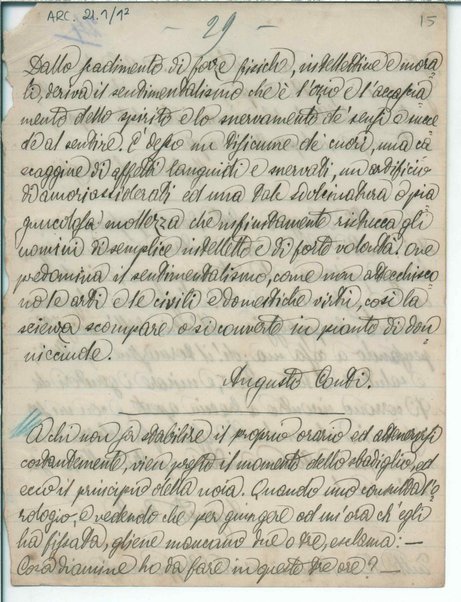 ARC. 21.1/12
- 29 -
15
Dallo scadimento di forze fisiche, intellettive e mora-
li, deriva il sentimentalismo che è l'
mento dello spirito e lo snervamento de' sensi e
del sentire. È desso un tisicume de' cuori, una ca-
scaggine di affetti languidi e snervati, un artificio
di amori ed una tale svolcinatura o pia
gnucolosa mollezza che infinitamente ristucca gli
uomini di semplice intelletto e di forte volontà. Ove
predomina il sentimentalismo, come non attecchisco-
no le arti e le civili e domestiche virtù, così la
scienza scompare o si converte in pianto di don-
nicciuole.
Augusto Conti.
A chi non sa stabilire il proprio orario ed attenersi
costantemente, vien presto il momento dello sbadiglio, ed
ecco il principio della noia. Quando uno consulta l'o-
rologio, e vedendo che per giungere ad un'ora ch'egli
ha fissata, gliene mancano due o tre, esclama: -
Cosa diamine ho da fare in queste tre ore? -